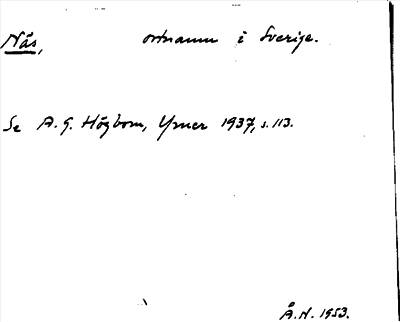 Nås, ortnamn i Sverige.
Se A. G. Högbom, Ymer 1937, s. 113.
Å. N. 1953.